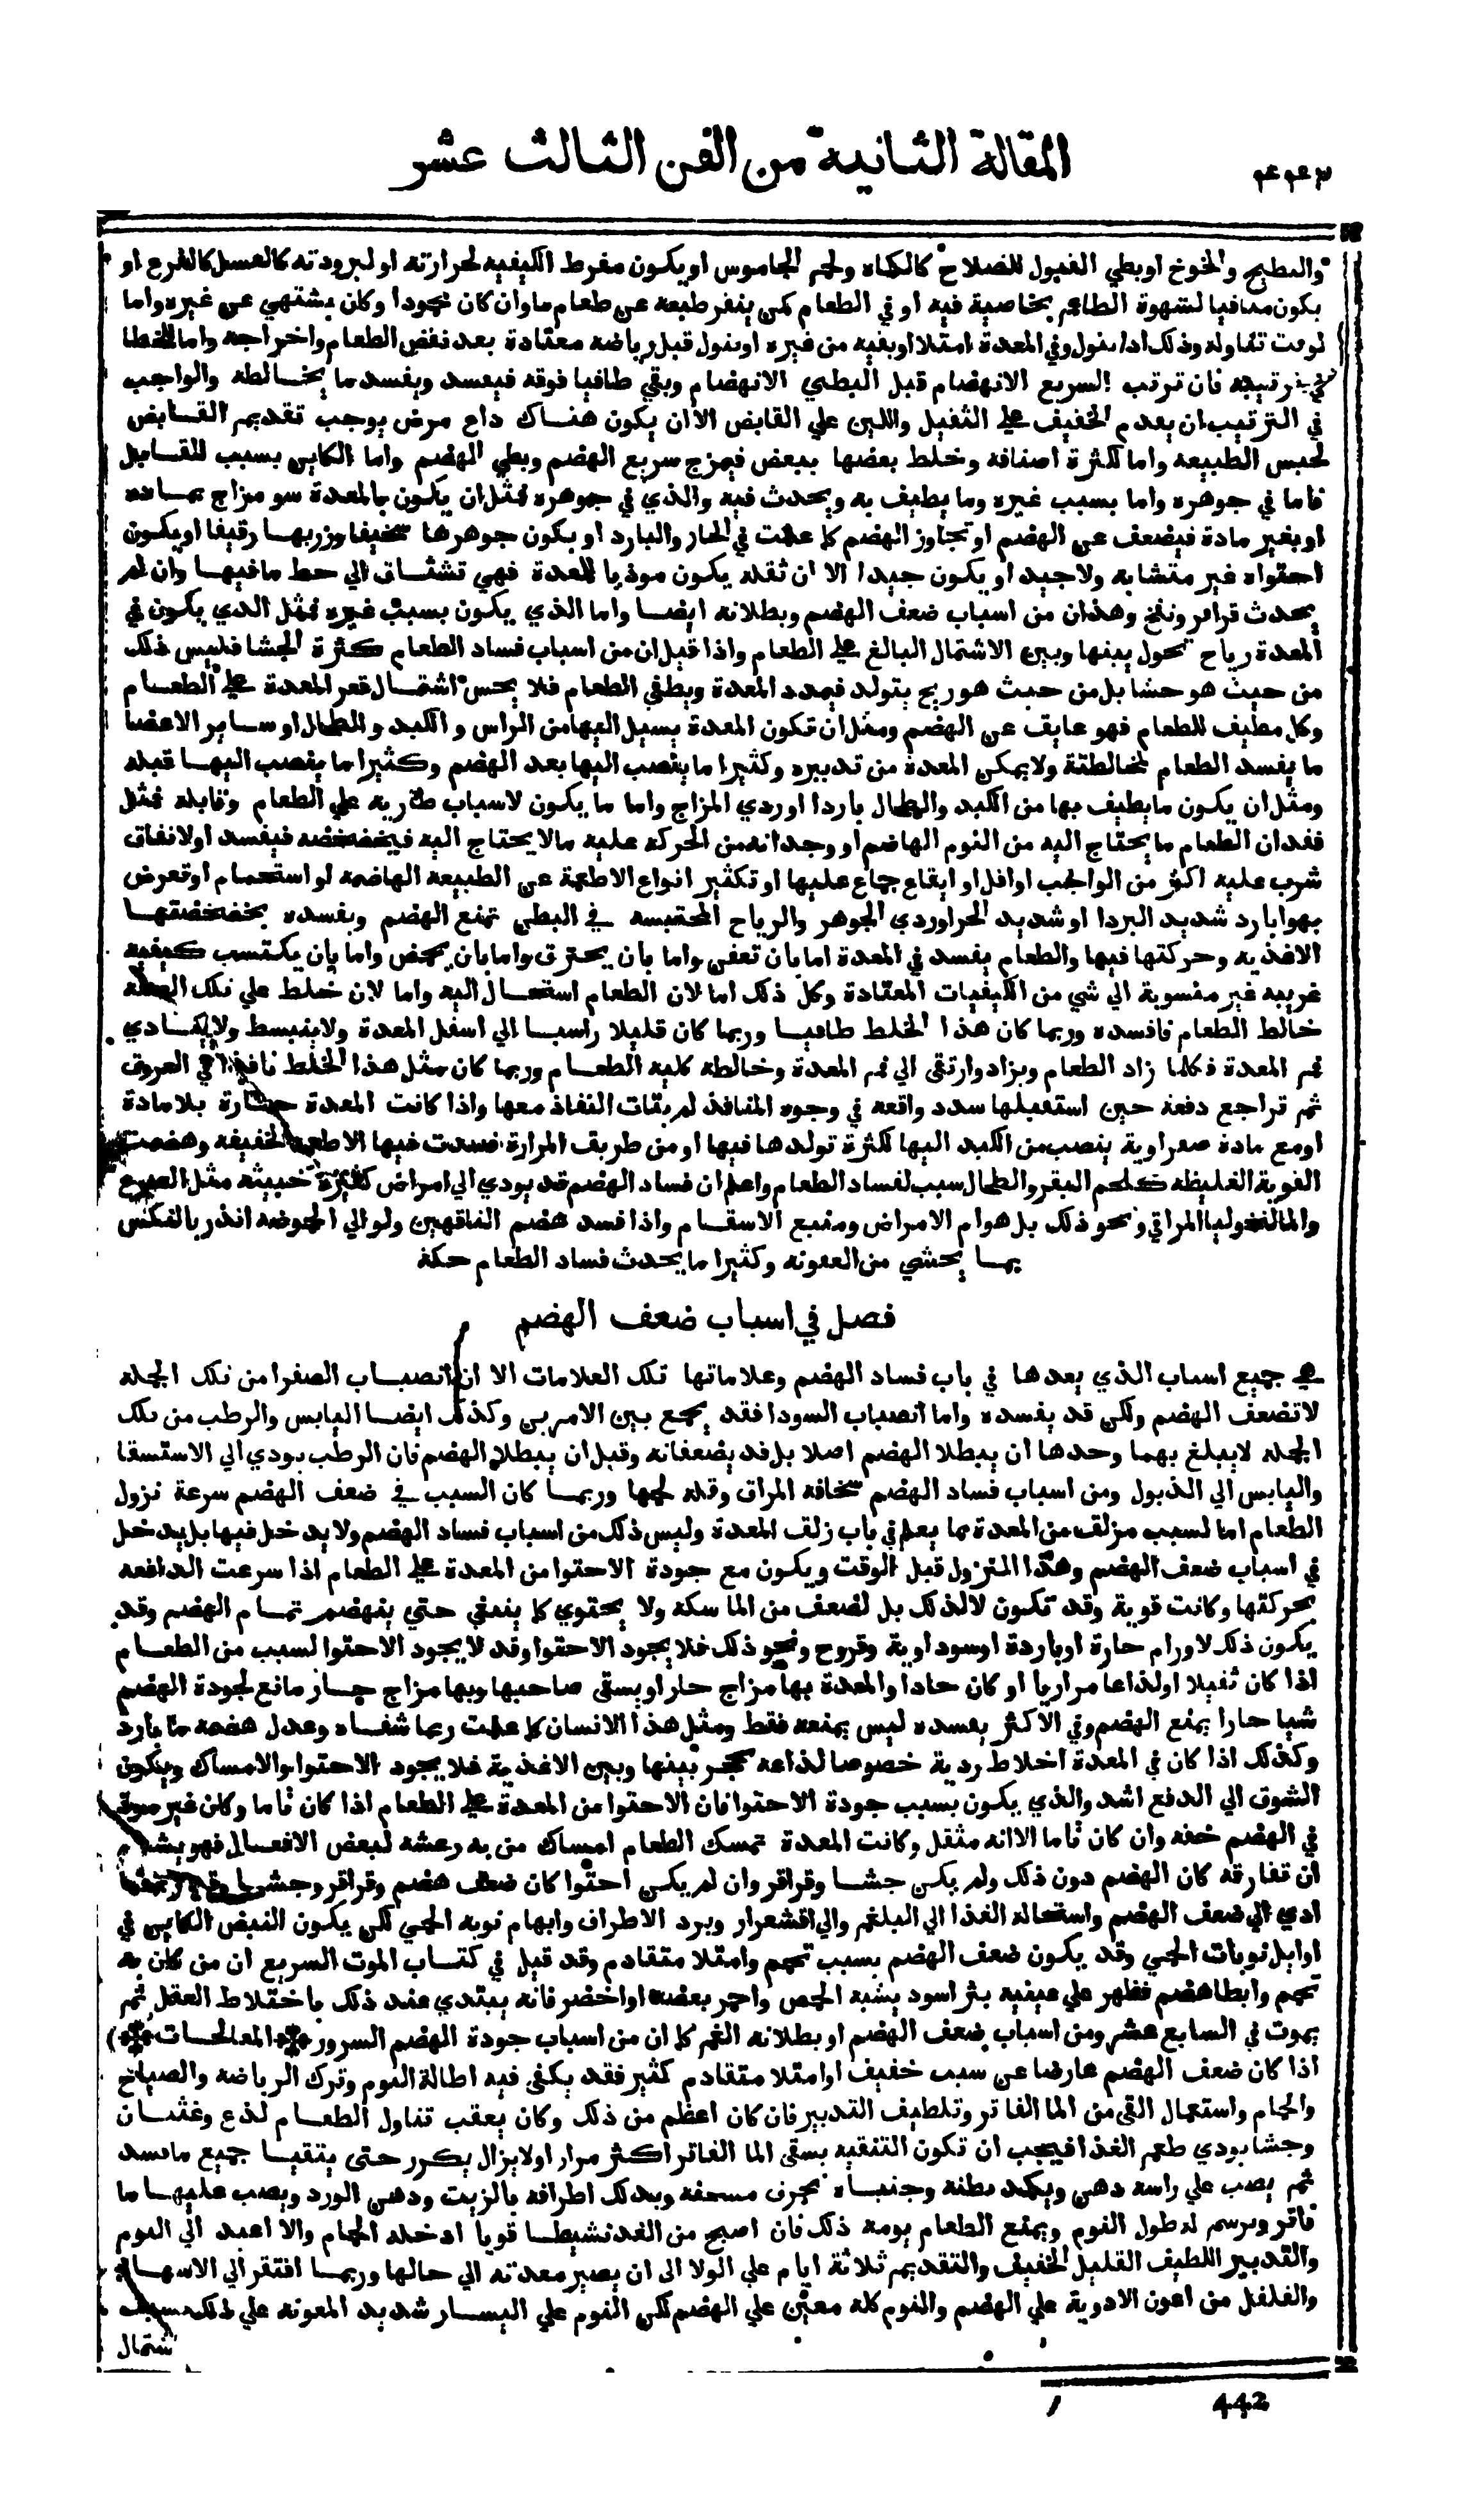 المقالة الثانية من الفن الثالث عشر
والبطيخ والخوخ او بطي القبول للصلاح كالكماه ولحم الجاموس او يكون مفرط الكيفيه لحرارته او لبرودته كالعسل كالقرع او
يكون منافيا لشهوة الطاعم بخاصية فيه او في الطعام كمن ينفر طبعه عن طعام ما وان كان محودا وكان يشتهي عن غيره واما
لوقت تناوله وذلك اذا تنول وفي المعدة امتلا او بقيه من غيره او تنول قبل رياضه معتادة بعد نفض الطعام واخراجه واما للخطا
في ترتيبه فان ترتب السريع الانهضام قبل البطي الانهضام وبقي طافيا فوقه فيفسد ويفسد ما يخالطه والواجب
في الترتيب ان يقدم الخفيف علي الثقيل واللين علي القابض الا ان يكون هناك داع مرض يوجب تقديم القابض
لحبس الطبيعه واما لكثرة اصنافه وخلط بعضها ببعض فيمزج سريع الهضم وبطي الهضم واما الكاين بسبب القابل
فاما في جوهره واما بسبب غيره وما يطيف به ويحدث فيه والذي في جوهره فمثل ان يكون بالمعدة سو مزاج بماده
او بغير مادة فيضعف عن الهضم او تجاوز الهضم كما علمت في الحار والبارد او يكون جوهرها سخيفا وزربها رقيقا او يكون
احتواه غير متشابه ولا جيد او يكون جيدا الا ان ثقله يكون موذيا للمعدة فهي تشتاق الي حط ما فيها وان لم
يحدث قراقر ونفخ وهذان من اسباب ضعف الهضم وبطلانه ايضا واما الذي يكون بسبب غيره فمثل الذي يكون في
المعدة رياح تحول بينها وبين الاشتمال البالغ علي الطعام واذا قيل ان من اسباب فساد الطعام كثرة الجشا فليس ذلك
من حيث هو جشا بل من حيث هو ريح يتولد فيمدد المعدة ويطفي الطعام فلا يحسن اشتمال قعر المعدة علي الطعام
وكل مطيف للطعام فهو عايق عن الهضم ومثل ان تكون المعدة يسيل اليها من الراس و الكبد و الطحال او ساير الاعضا
ما يفسد الطعام لمخالطته ولا يمكن المعدة من تدبيره وكثيرا ما ينصب اليها بعد الهضم وكثيرا ما ينصب اليها قبله
ومثل ان يكون ما يطيف بها من الكبد والطحال باردا او ردي المزاج واما ما يكون لاسباب طاريه علي الطعام وقابله فمثل
فقدان الطعام ما يحتاج اليه من النوم الهاضم او وجدانه من الحركه عليه ما لا يحتاج اليه فيخضخضه فيفسد او لاتفاق
شرب عليه اكثر من الواجب او اقل او ايقاع جماع عليها او تكثير انواع الاطعمة عن الطبيعه الهاضمه او استحمام او تعرض
بهوا بارد شديد البرد او شديد الحر او ردي الجوهر والرياح المحتبسه في البطن تمنع الهضم وبفسده بخضخضتها
الاغذيه وحركتها فيها والطعام يفسد في المعدة اما بان تعفن واما بان يحترق واما بان يحمض واما بان يكتسب كيفيه
غريبه غير منسوبة الي شي من الكيفيات المعتادة وكل ذلك اما لان الطعام استحال اليه واما لان خلط علي تلك الصفه
خالط الطعام فافسده وربما كان هذا الخلط طافيا وربما كان قليلا راسبا الي اسفل المعدة ولا ينبسط ولا يتادي
فم المعدة فكلما زاد الطعام وبزاد وارتقي الي فم المعدة وخالطه كليه الطعام وربما كان مثل هذا الخلط نافذا في العروق
ثم تراجع دفعه حين استقبلها سدد واقعه في وجوه المنافذ لم يتات النفاذ معها واذا كانت المعدة حارة بلا مادة
او مع مادة صفراوية ينصب من الكبد اليها لكثرة تولدها فيها او من طريق المرارة فسدت فيها الاطعمه الخفيفه وهضمت
القوية الغليظه كلحم البقر والطحال سبب لفساد الطعام واعلم ان فساد الهضم قد يودي الي امراض كثيرة خبيثه مثل الصرع
والمالنخوليا المراقي ونحو ذلك بل هو ام الامراض ومنبع الاسقام واذا فسد هضم الناقهين ولو الي الحموضه انذر بالنكس
بما يحشي من العفونه وكثيرا ما يحدث فساد الطعام حكة
فصل في اسباب ضعف الهضم
هي جميع اسباب الذي بعدها في باب فساد الهضم وعلاماتها تلك العلامات الا ان انصباب الصفرا من تلك الجمله
لا تضعف الهضم ولكن قد يفسده واما انصباب السودا فقد يجمع بين الامرين وكذلك ايضا اليابس والرطب من تلك
الجمله لا يبلغ بهما وحدها ان يبطلا الهضم اصلا بل قد يضعفانه وقبل ان يبطلا الهضم فان الرطب يودي الي الاستسقا
واليابس الي الذبول ومن اسباب فساد الهضم سخافه المراق وقله لحمها وربما كان السبب في ضعف الهضم سرعة نزول
الطعام اما لسبب مزلق من المعدة مما يعلم في باب زلق المعدة وليس ذلك من اسباب فساد الهضم ولا يدخل فيها بل يدخل
في اسباب ضعف الهضم وهذا النزول قبل الوقت ويكون مع جودة الاحتوا من المعدة علي الطعام اذا سرعت الدافعه
بحركتها وكانت قوية وقد تكون لا لذلك بل لضعف من الماسكه ولا يحتوي كما ينبغي حتي ينهضم تمام الهضم وقد
يكون ذلك لاورام حارة او باردة او سوداوية وقروح ونحو ذلك فلا يجود الاحتوا وقد لا يجود الاحتوا لسبب من الطعام
اذا كان ثقيلا او لذاعا مراريا او كان حادا والمعدة بها مزاج حار او يسقي صاحبها وبها مزاج حار مانع لجودة الهضم
شيا حارا يمنع الهضم وفي الاكثر يفسده ليس يمنعه فقط ومثل هذا الانسان كما علمت ربما شفاه وعدل هضمه ما بارد
وكذلك اذا كان في المعدة اخلاط ردية خصوصا لذاعه تحجر بينها وبين الاغذية فلا يجود الاحتوا والامساك ويكون
الشوق الي الدفع اشد والذي يكون بسبب جودة الاحتوا فان الاحتوا من المعدة علي الطعام اذا كان تاما وكان غير موذ
في الهضم خفه وان كان تاما الا انه مثقل وكانت المعدة تمسك الطعام امساك من به رعشه لبعض الافعال فهو يشتهي
ان تفارقه كان الهضم دون ذلك ولم يكن جشا وقراقر وان لم يكن احتوا كان ضعف هضم وقراقر وجشا
ادي الي ضعف الهضم واستحالة الغذا الي البلغم والي اقشعرار وبرد الاطراف وابهام نوبه الحمي لكن يكون النبض الكاين في
اوايل نوبات الحمي وقد يكون ضعف الهضم بسبب تخم وامتلا متقادم وقد قيل في كتاب الموت السريع ان من كان به
تخم وابطا هضم فظهر علي عينيه بثر اسود يشبه الحمص واحمر بعضه او اخضر فانه يبتدي عند ذلك باختلاط العقل ثم
يموت في السابع عشر ومن اسباب ضعف الهضم او بطلانه الغم كما ان من اسباب جودة الهضم السرور ❊ المعالجات ❊)
اذا كان ضعف الهضم عارضا عن سبب خفيف او امتلا متقادم كثير فقد يكفي فيه اطالة النوم وترك الرياضه والصياح
والحمام واستعمال القي من الما الفاتر وتلطيف التدبير فان كان اعظم من ذلك وكان يعقب تناول الطعام لذع وغثيان
وجشا يودي طعم الغذا فيجب ان تكون التنقيه بسقي الما الفاتر اكثر مرارا ولا يزال يكرر حتي يتقيا جميع ما فسد
ثم يصب علي راسه دهن ويكمد بطنه وجنباه بخرق مسخنه ويدلك اطرافه بالزيت ودهن الورد ويصب عليها ما
فاتر ويرسم له طول النوم ويمنع الطعام يومه ذلك فان اصبح من الغد نشيطا قويا ادخله الحمام والا اعيد الي النوم
والتدبير اللطيف القليل الخفيف والتقديم ثلاثة ايام علي الولا الي ان يصير معدته الي حالها وربما افتقر الي الاسهال
والفلفل من اعون الادوية علي الهضم والنوم كله معين علي الهضم لكن النوم علي اليسار شديد المعونه علي ذلك بسبب
شتمال
442